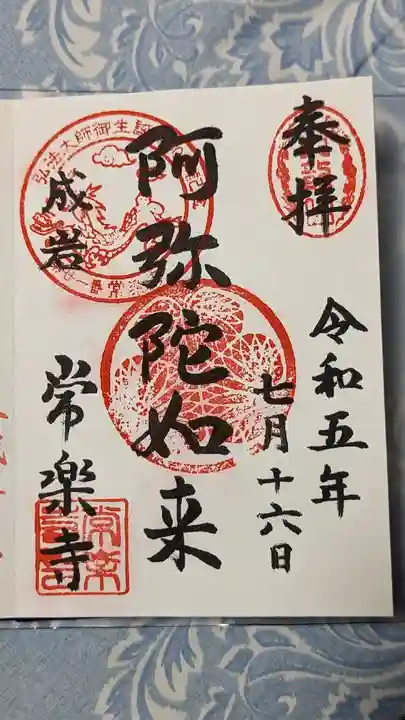 奉拝
令和五年
七月十六日
阿弥陀如来
成岩
常楽寺
弘法大師御生誕
常楽寺